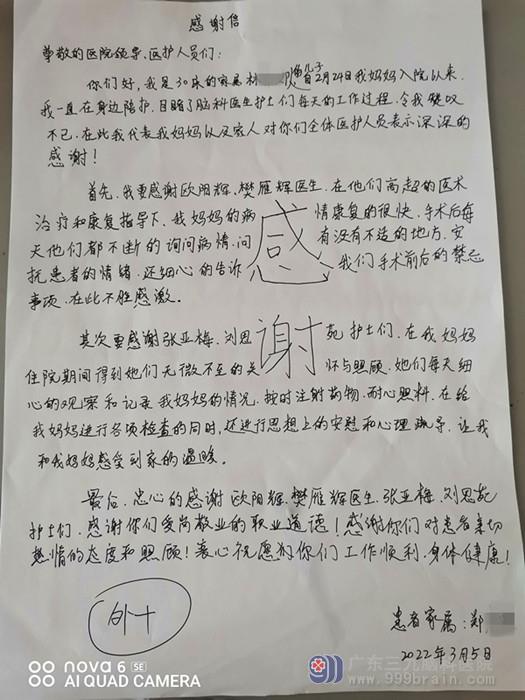 感谢信
尊敬的医院领导、医护人员们：
你们好，我是30床的家属林 儿子2月24日我妈妈入院以来，
我一直在身边陪护，目睹了脑科医生护士们每天的工作过程，令我赞叹
不已，在此我代表我妈妈以及家人对你们全体医护人员表示深深的
感谢！
首先，我要感谢欧阳辉、樊雁辉医生，在他们高超的医术
治疗和康复指导下，我妈妈的病感情康复的很快，手术后每
天他们都不断的询问病情，问有没有不适的地方，安
抚患者的情绪，还细心的告诉我们手术前后的禁忌
事项，在此不胜感激。
其次要感谢张亚梅、刘思谢苑护士们，在我妈妈
住院期间得到她们无微不至的关怀与照顾，她们每天细
心的观察和记录我妈妈的情况，按时注射药物，耐心照料，在给
我妈妈进行各项检查的同时，还进行思想上的安慰和心理疏导，让我
和我妈妈感受到家的温暖。
最后，忠心的感谢欧阳辉、樊雁辉医生，张亚梅、刘思苑
护士们，感谢你们爱岗敬业的职业道德！感谢你们对患者亲切
热情的态度和照顾！衷心祝愿你们工作顺利，身体健康！
外十
患者家属：郑
2022年3月5日
nova 6 SE
AI QUAD CAMERA
广东三九脑科医院
www.999brain.com